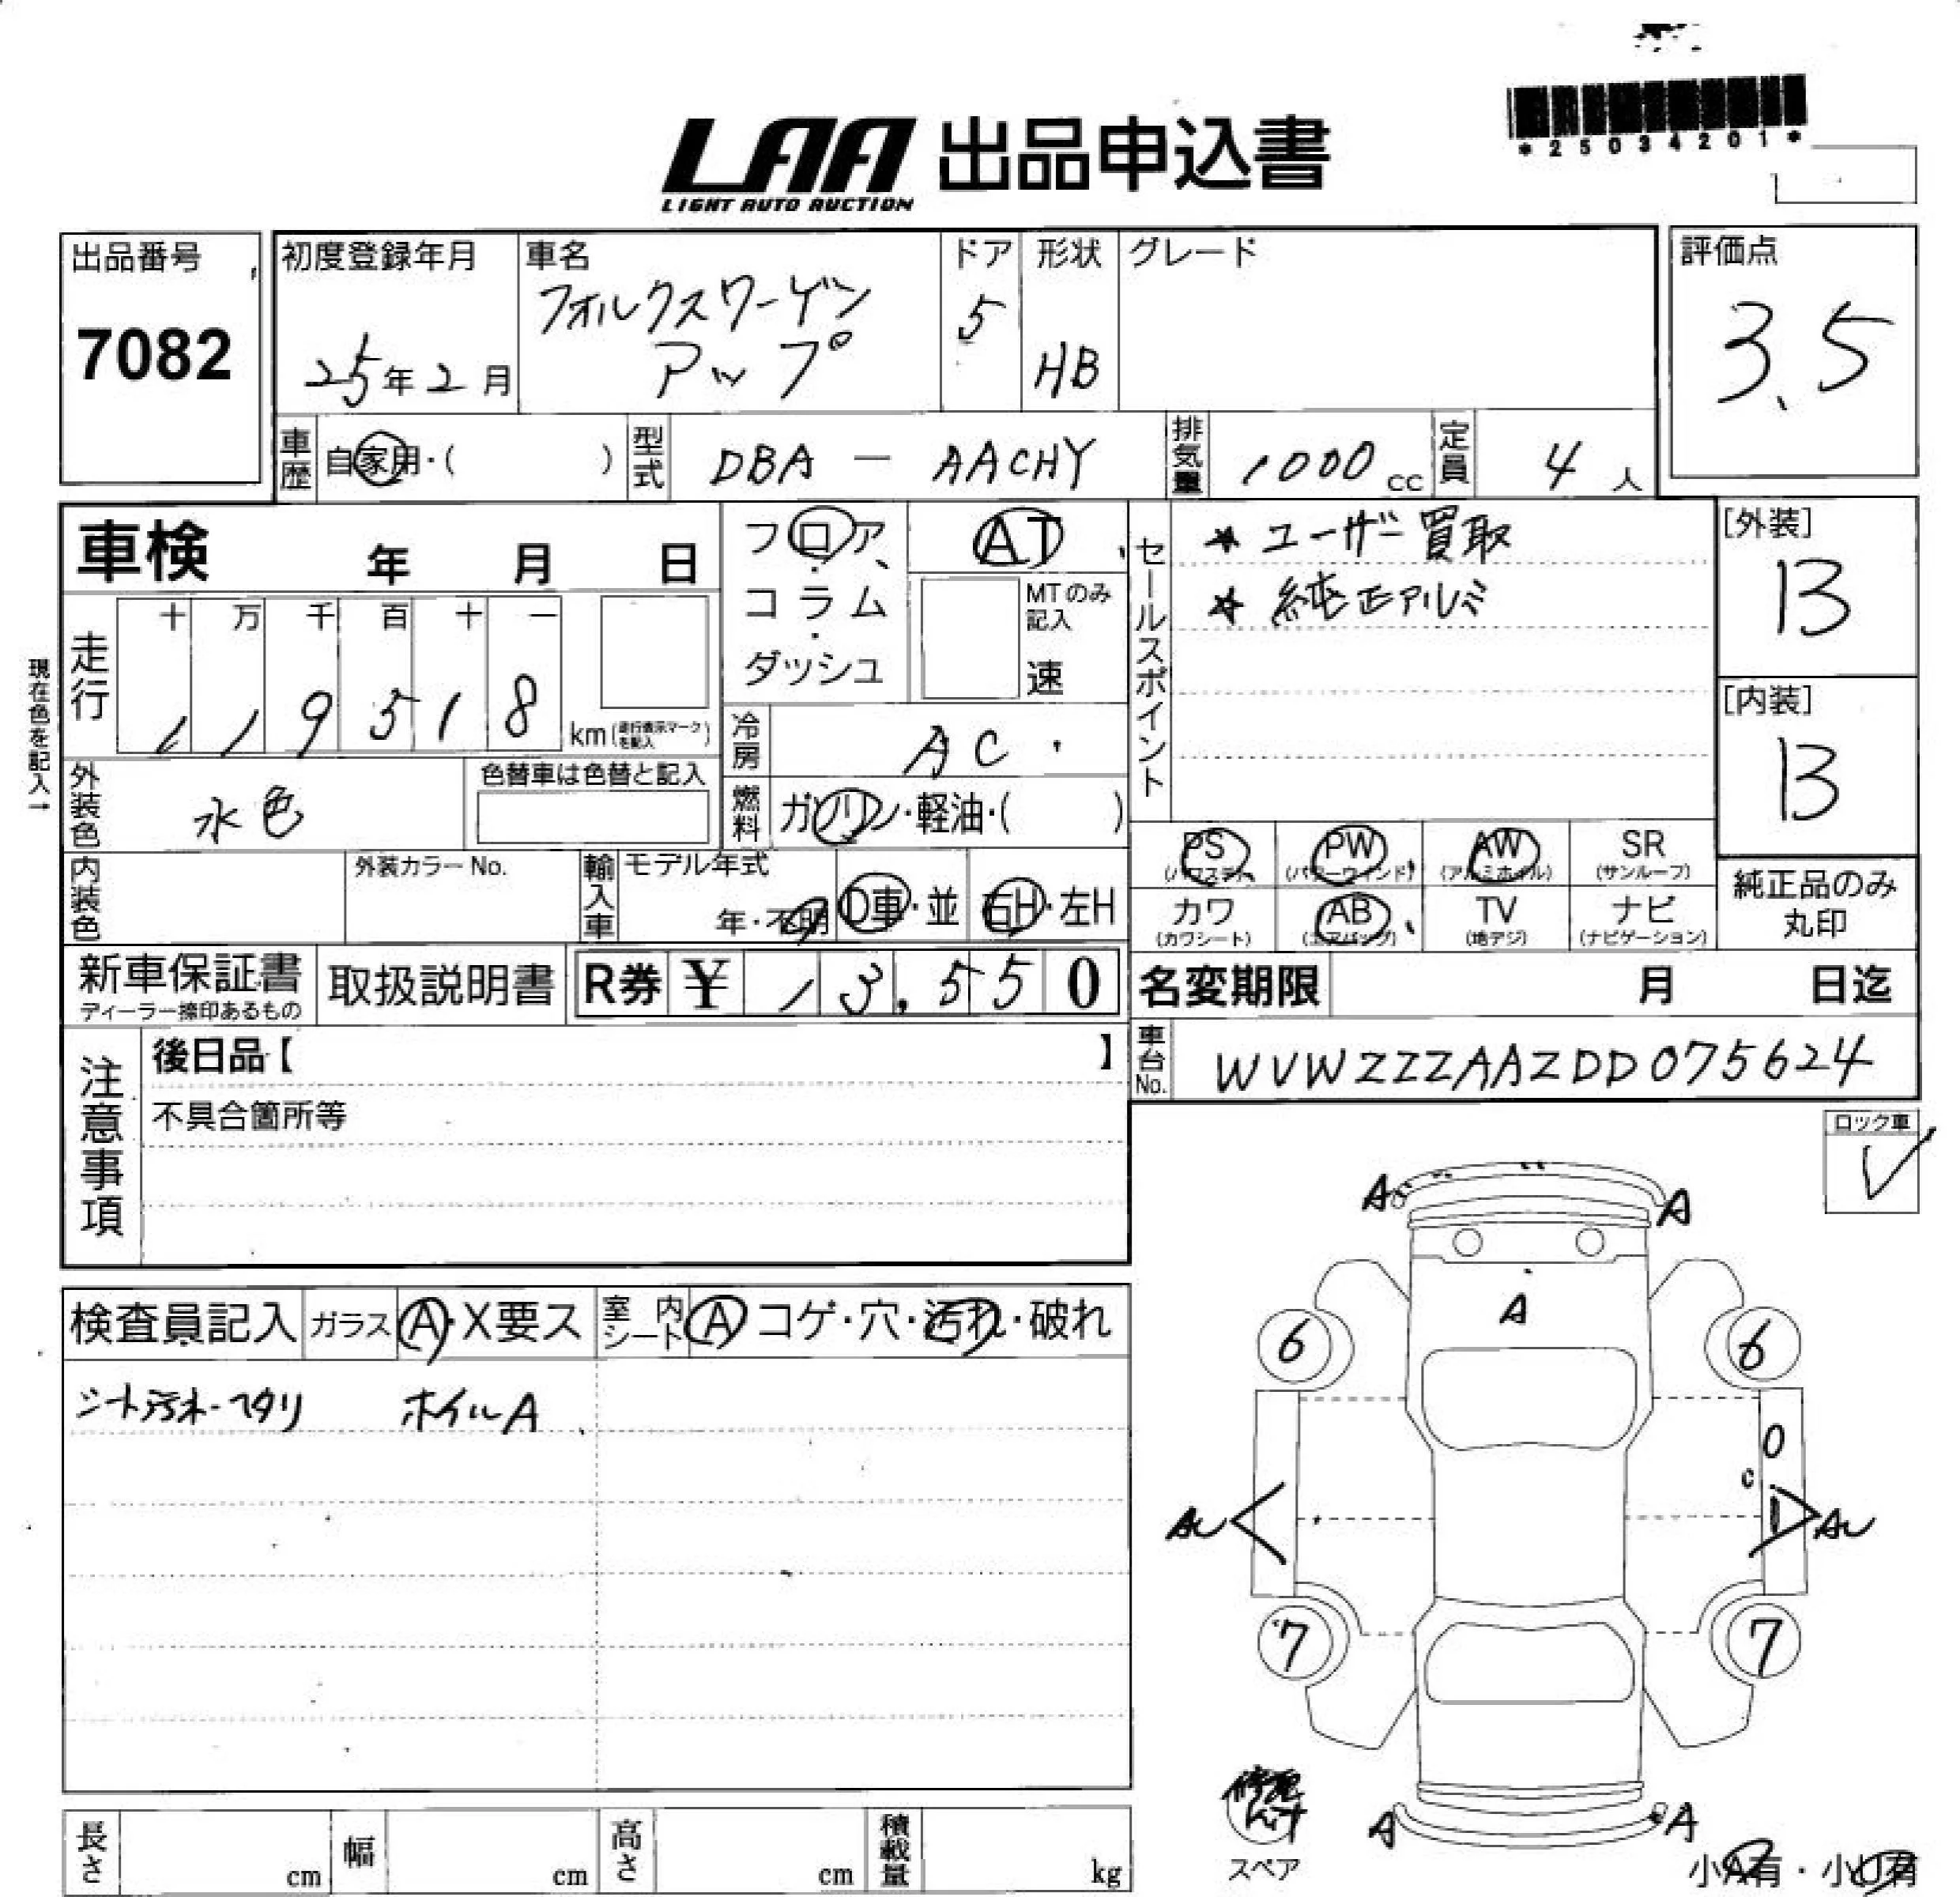 *25034201*
LAA 出品申込書
LIGHT AUTO AUCTION
出品番号
7082
初度登録年月
25年2月
車名
フォルクスワーゲン
アップ
ドア
5
形状
HB
グレード
評価点
3.5
車歴
自家用・( )
型式
DBA - AACHY
排気量
1000 cc
定員
4 人
車検 年 月 日
フロア・
コラム・
ダッシュ
AT
MTのみ
記入
速
セールスポイント
★ ユーザー買取
★ 純正アルミ
[外装]
B
[内装]
B
現在色を記入→
走行
十 万 千 百 十 一
1 1 9 5 1 8
km(走行表示マークを記入)
冷房
AC
外装色
水色
色替車は色替と記入
燃料
ガソリン・軽油・( )
PS
(パワステ)
PW
(パワーウィンド)
AW
(アルミホイル)
SR
(サンルーフ)
カワ
(カワシート)
AB
(エアバッグ)
TV
(地デジ)
ナビ
(ナビゲーション)
純正品のみ
丸印
内装色
外装カラーNo.
輸入車
モデル年式
年・不明
D車・並
右H・左H
新車保証書
ディーラー捺印あるもの
取扱説明書
R券 ¥ 13,550
名変期限 月 日迄
車台No.
WVWZZZAAZDD075624
注意事項
後日品【 】
不具合箇所等
ロック車
✓
検査員記入
ガラス
A・X要ス
室内シート
A コゲ・穴・汚れ・破れ
シート汚れ・ヘタリ ホイルA
A A
A
6 6
O
c
AU AU
7 7
A A
スペア
小A有・小U有
長さ cm
幅 cm
高さ cm
積載量 kg